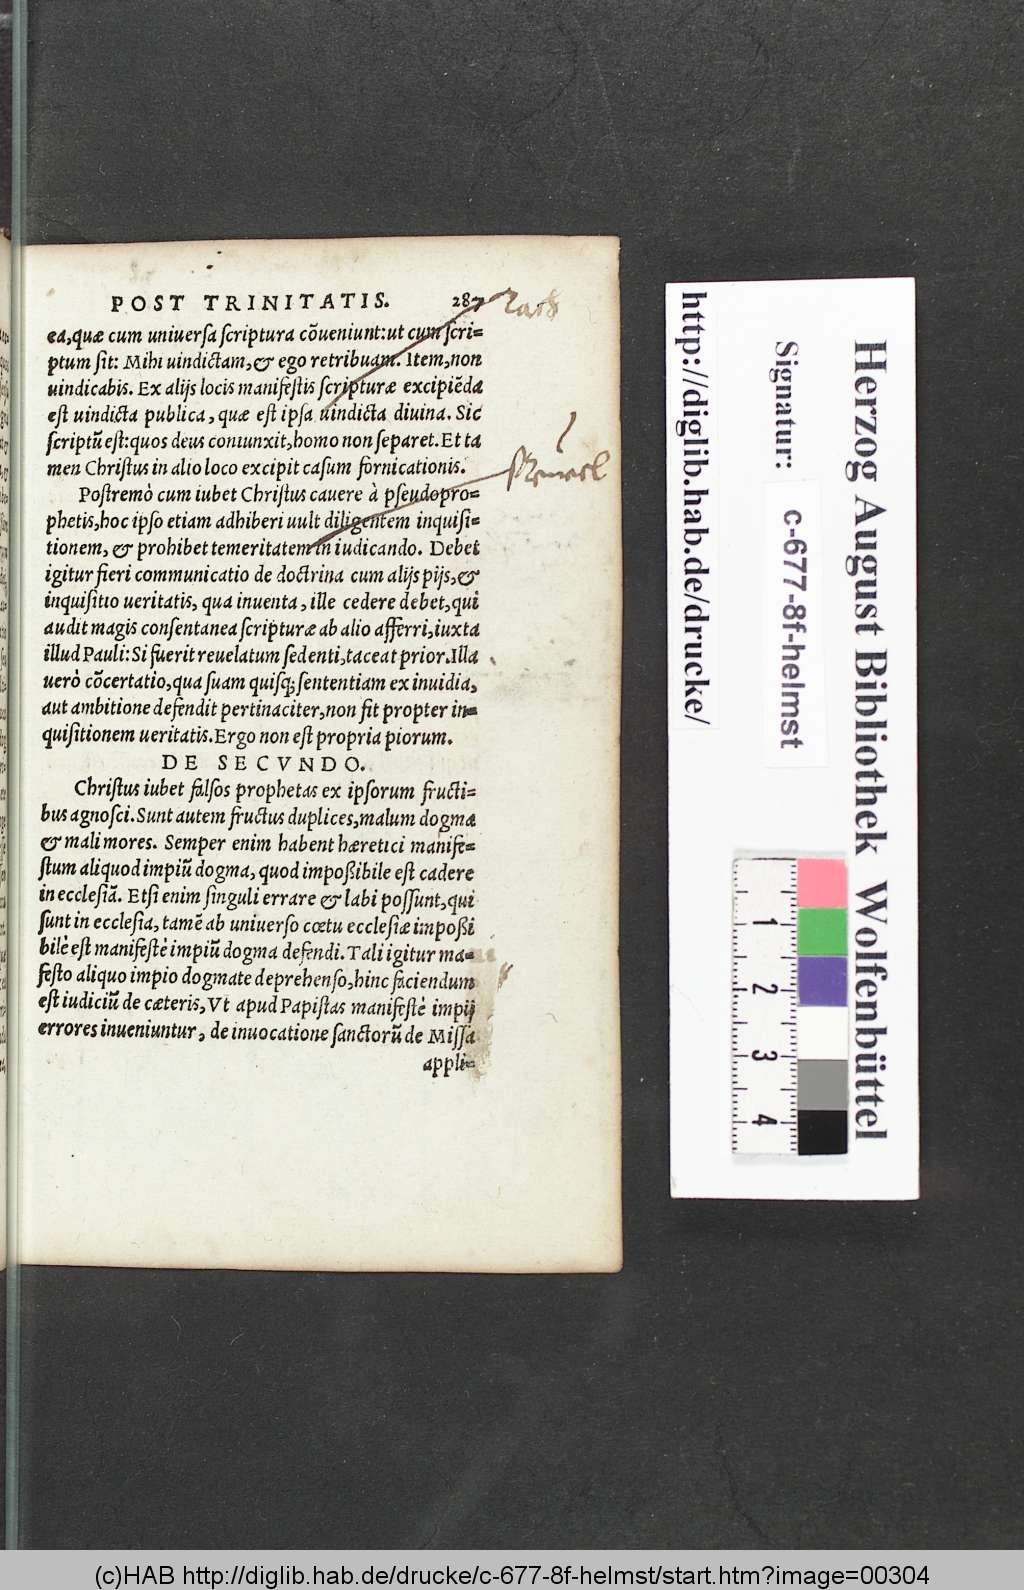 POST TRINITATIS. 287
ea, quæ cum uniuersa scriptura cōueniunt: ut cum scri=
ptum sit: Mihi uindictam, & ego retribuam. Item, non
uindicabis. Ex alijs locis manifestis scripturæ excipiēda
est uindicta publica, quæ est ipsa uindicta diuina. Sic
scriptū est: quos deus coniunxit, homo non separet. Et ta
men Christus in alio loco excipit casum fornicationis.
Postremò cum iubet Christus cauere à pseudopro=
phetis, hoc ipso etiam adhiberi uult diligentem inquisi=
tionem, & prohibet temeritatem in iudicando. Debet
igitur fieri communicatio de doctrina cum alijs pijs, &
inquisitio ueritatis, qua inuenta, ille cedere debet, qui
audit magis consentanea scripturæ ab alio afferri, iuxta
illud Pauli: Si fuerit reuelatum sedenti, taceat prior. Illa
uerò cōcertatio, qua suam quisq; sententiam ex inuidia,
aut ambitione defendit pertinaciter, non fit propter in=
quisitionem ueritatis. Ergo non est propria piorum.
DE SECVNDO.
Christus iubet falsos prophetas ex ipsorum fructi=
bus agnosci. Sunt autem fructus duplices, malum dogma
& mali mores. Semper enim habent hæretici manife=
stum aliquod impiū dogma, quod impoßibile est cadere
in ecclesiā. Etsi enim singuli errare & labi possunt, qui
sunt in ecclesia, tamē ab uniuerso cœtu ecclesiæ impoßi
bile est manifestè impiū dogma defendi. Tali igitur ma=
festo aliquo impio dogmate deprehenso, hinc faciendum
est iudiciū de cæteris, Vt apud Papistas manifestè impij
errores inueniuntur, de inuocatione sanctorū de Missa
appli=
http://diglib.hab.de/drucke/
Signatur:
c-677-8f-helmst
Herzog August Bibliothek Wolfenbüttel
1
2
3
4
(c)HAB http://diglib.hab.de/drucke/c-677-8f-helmst/start.htm?image=00304